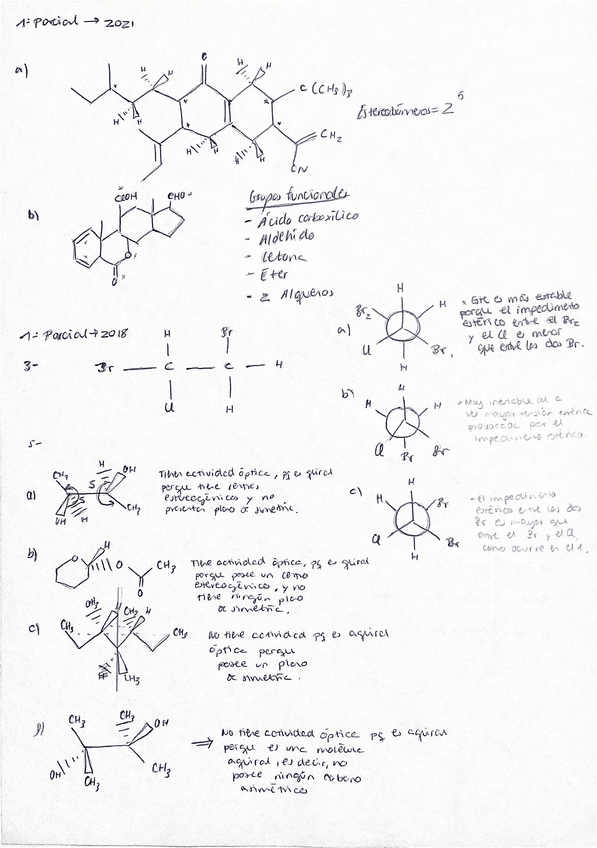 1º Parcial → 2021
a)
H H
O
H H
C(CH₃)₃
Estereoisómeros = 2⁵
CH₂
H H
H H
H H
CN
b)
COOH
CHO
O
O
Grupos funcionales
- Ácido carboxílico
- Aldehido
- Cetona
- Éter
- 2 Alquenos
1º Parcial → 2018
3-
H
Br
Br — C — C — H
Cl
H
a)
H
Br₂
H
Cl
Br
H
* Este es más estable
porque el impedimento
estérico entre el Br₂
y el Cl es menor
que entre los dos Br.
b)
H
H
H
Cl
Br
Br
* Muy inestable
mayor tensión estérica
provocada por el
impedimento estérico
c)
H
H
Br
Cl
Br
H
* El impedimento
estérico entre los dos
Br es mayor que
entre el Br y el Cl,
como ocurre en el
5-
a)
CH₃
H
OH
S
S
OH
H
CH₃
Tiene actividad óptica, pq es quiral
porque tiene centros
estereogénicos y no
presenta plano de simetría.
b)
O
H
O
CH₃
O
Tiene actividad óptica, pq es quiral
porque posee un centro
estereogénico, y no
tiene ningún plano
de simetría.
c)
CH₃
CH₃
H
CH₃
CH₃
No tiene actividad pq es aquiral
óptica porque
posee un plano
de simetría.
CH₃
CH₃
OH
OH
CH₃
CH₃
⇒ No tiene actividad óptica pq es aquiral
porque es una molécula
aquiral, es decir, no
posee ningún carbono
asimétrico